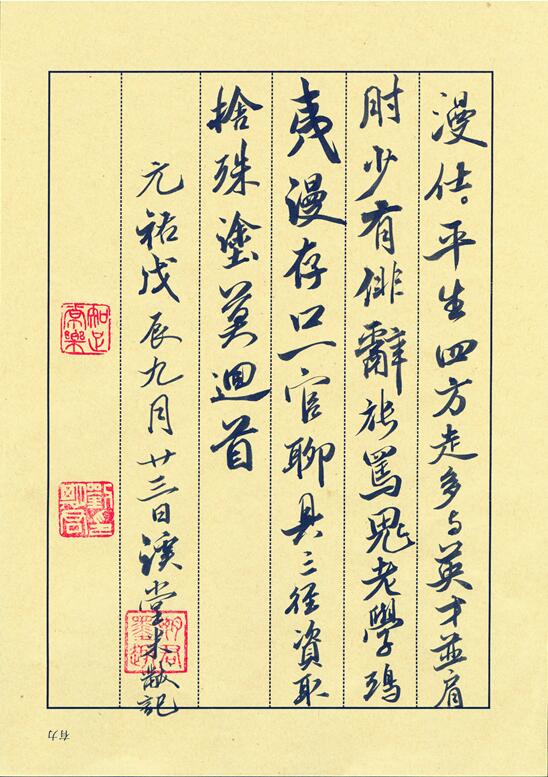 漫仕。平生四方走多与英才並肩
肘少有俳辭能罵鬼老學鴟
夷漫存口一官聊具三徑資取
捨殊塗莫迴首
元祐戊辰九月廿三日溪堂米黻記
知足常樂
有力